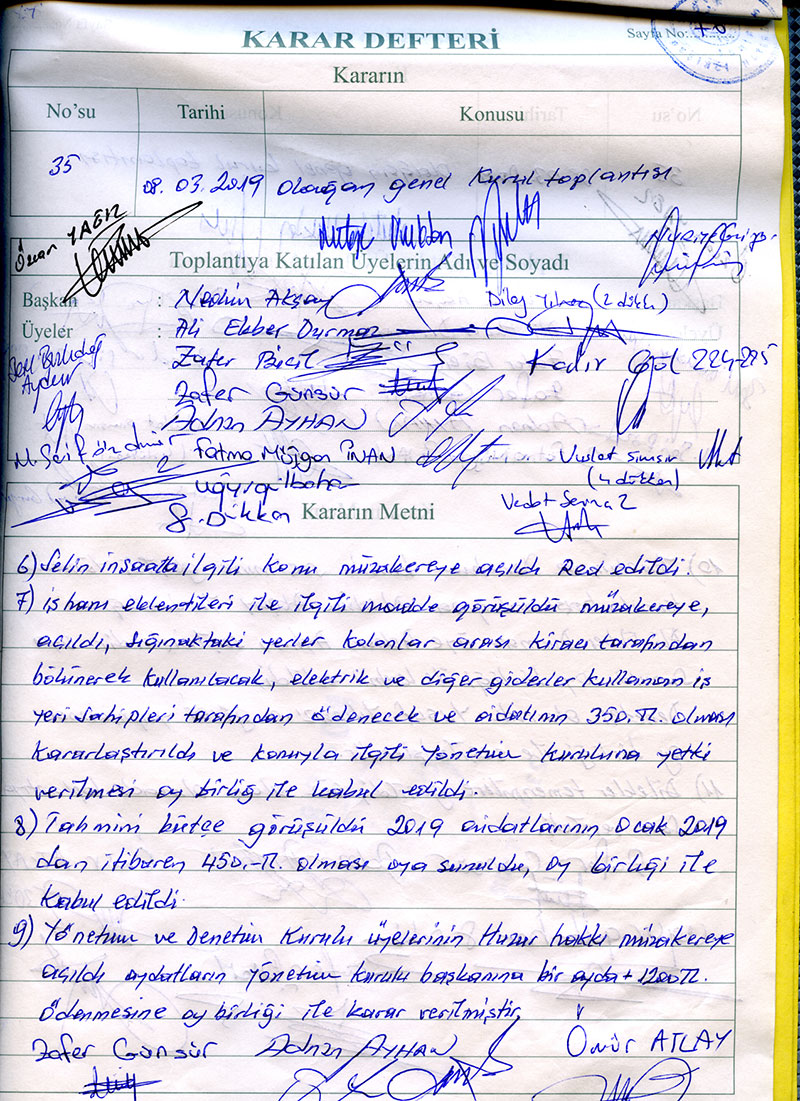 KARAR DEFTERİ
Sayfa No:
Kararın
No'su Tarihi Konusu
35 08.03.2019 Olağan genel Kurul toplantısı
Özcan
Toplantıya Katılan Üyelerin Adı ve Soyadı
Başkan : Nechin Akşay
Dilay Yılmaz (2 dükkan)
Üyeler : Ali Ekber Durmaz
: Zafer Bicil
Kadir Göl 224-225
Aydın
: Zafer Günsür
Adnan AYHAN
M. Şerif Özdemir
Fatma Müjgan İNAN
Vuslat Şimşir
(4 dükkan)
uğurgülbahar
8. Dükkan
Vedat
Kararın Metni
6) Selin inşaatla ilgili konu müzakereye açıldı Red edildi.
7) işhanı eklentileri ile ilgili madde görüşüldü müzakereye,
açıldı, sığınaktaki yerler kolonlar arası kiracı tarafından
bölünerek kullanılacak, elektrik ve diğer giderler kullanan iş
yeri sahipleri tarafından ödenecek ve aidatının 350.TL. olması
kararlaştırıldı ve konuyla ilgili Yönetim kuruluna yetki
verilmesi oy birliğ ile kabul edildi.
8) Tahmini bütçe görüşüldü 2019 aidatlarının Ocak 2019
dan itibaren 450.-TL. olması oya sunuldu, oy birliği ile
kabul edildi.
9) Yönetim ve Denetim Kurulu üyelerinin Huzur hakkı müzakereye
açıldı aydatların yönetim kurulu başkanına bir ayda + 1200TL.
ödenmesine oy birliği ile karar verilmiştir.
Zafer Günsür Adnan AYHAN Ömür ATLAY